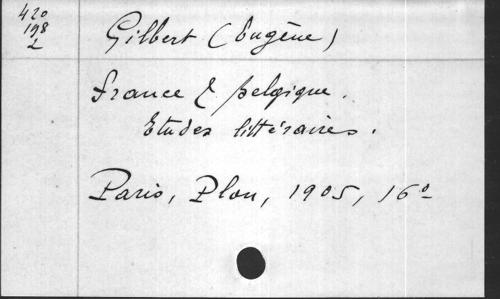 420
198
L
Gilbert (Eugène)
France & Belgique.
Etudes littéraires.
Paris, Plon, 1905, 16º